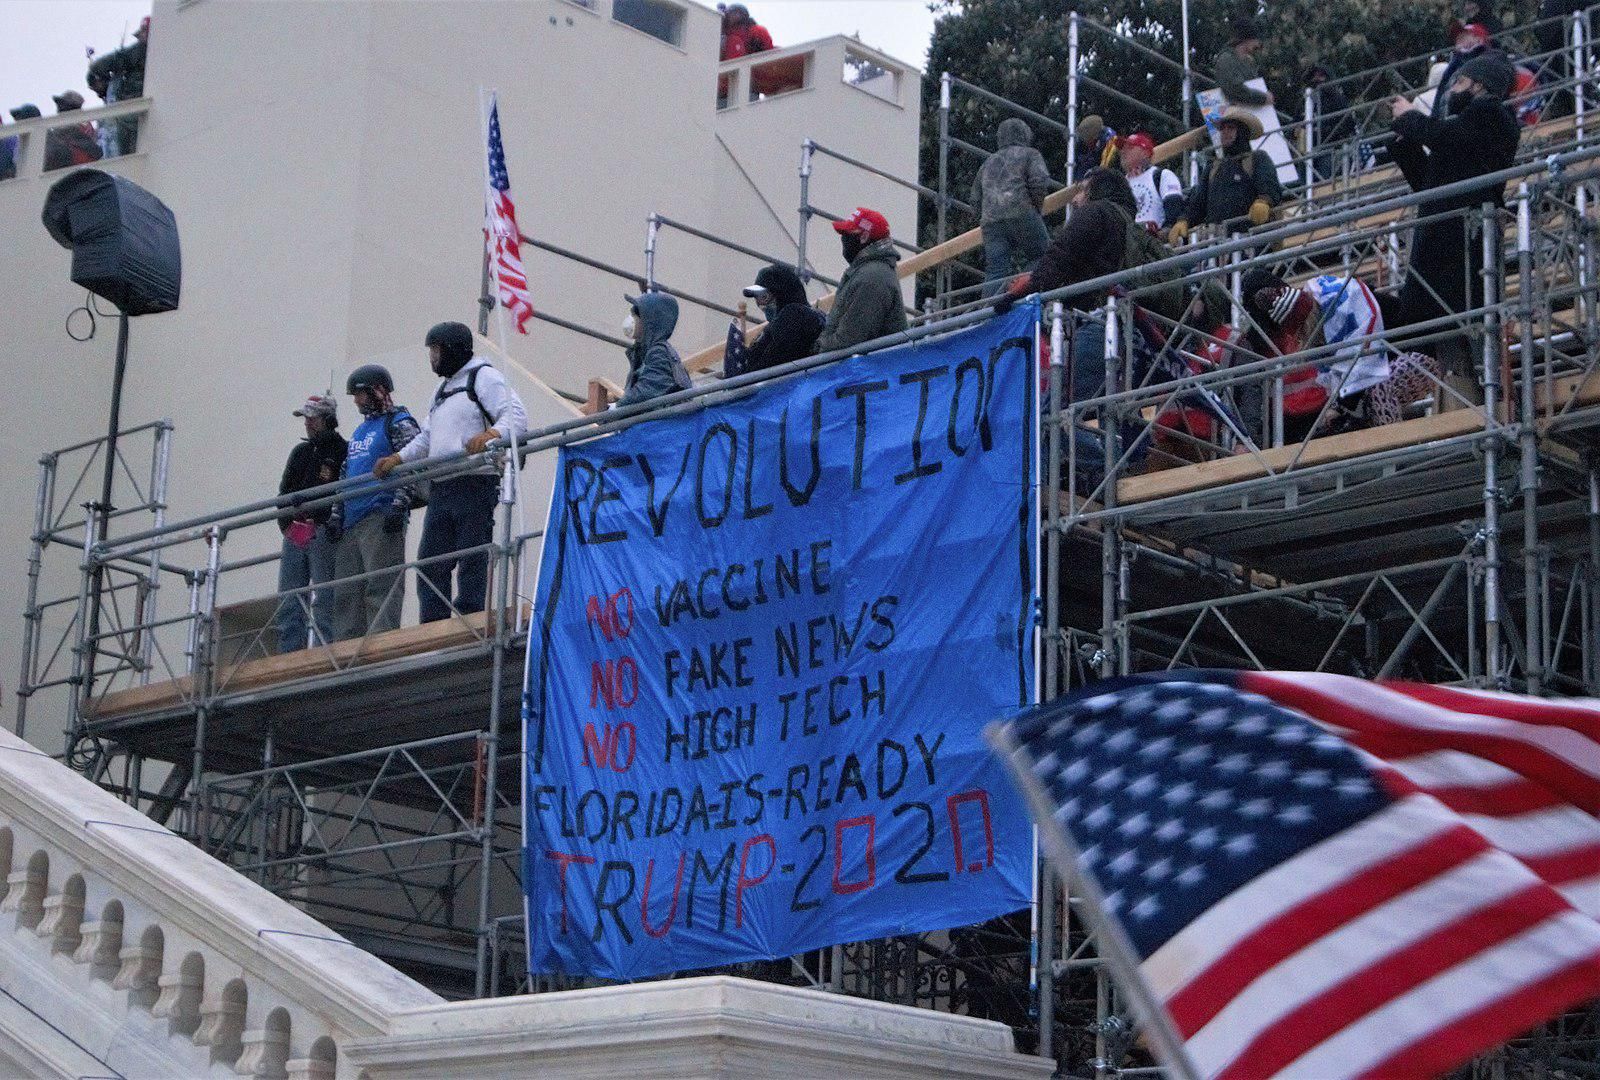 REVOLUTION
NO VACCINE
NO FAKE NEWS
NO HIGH TECH
FLORIDA-IS-READY
TRUMP-2020